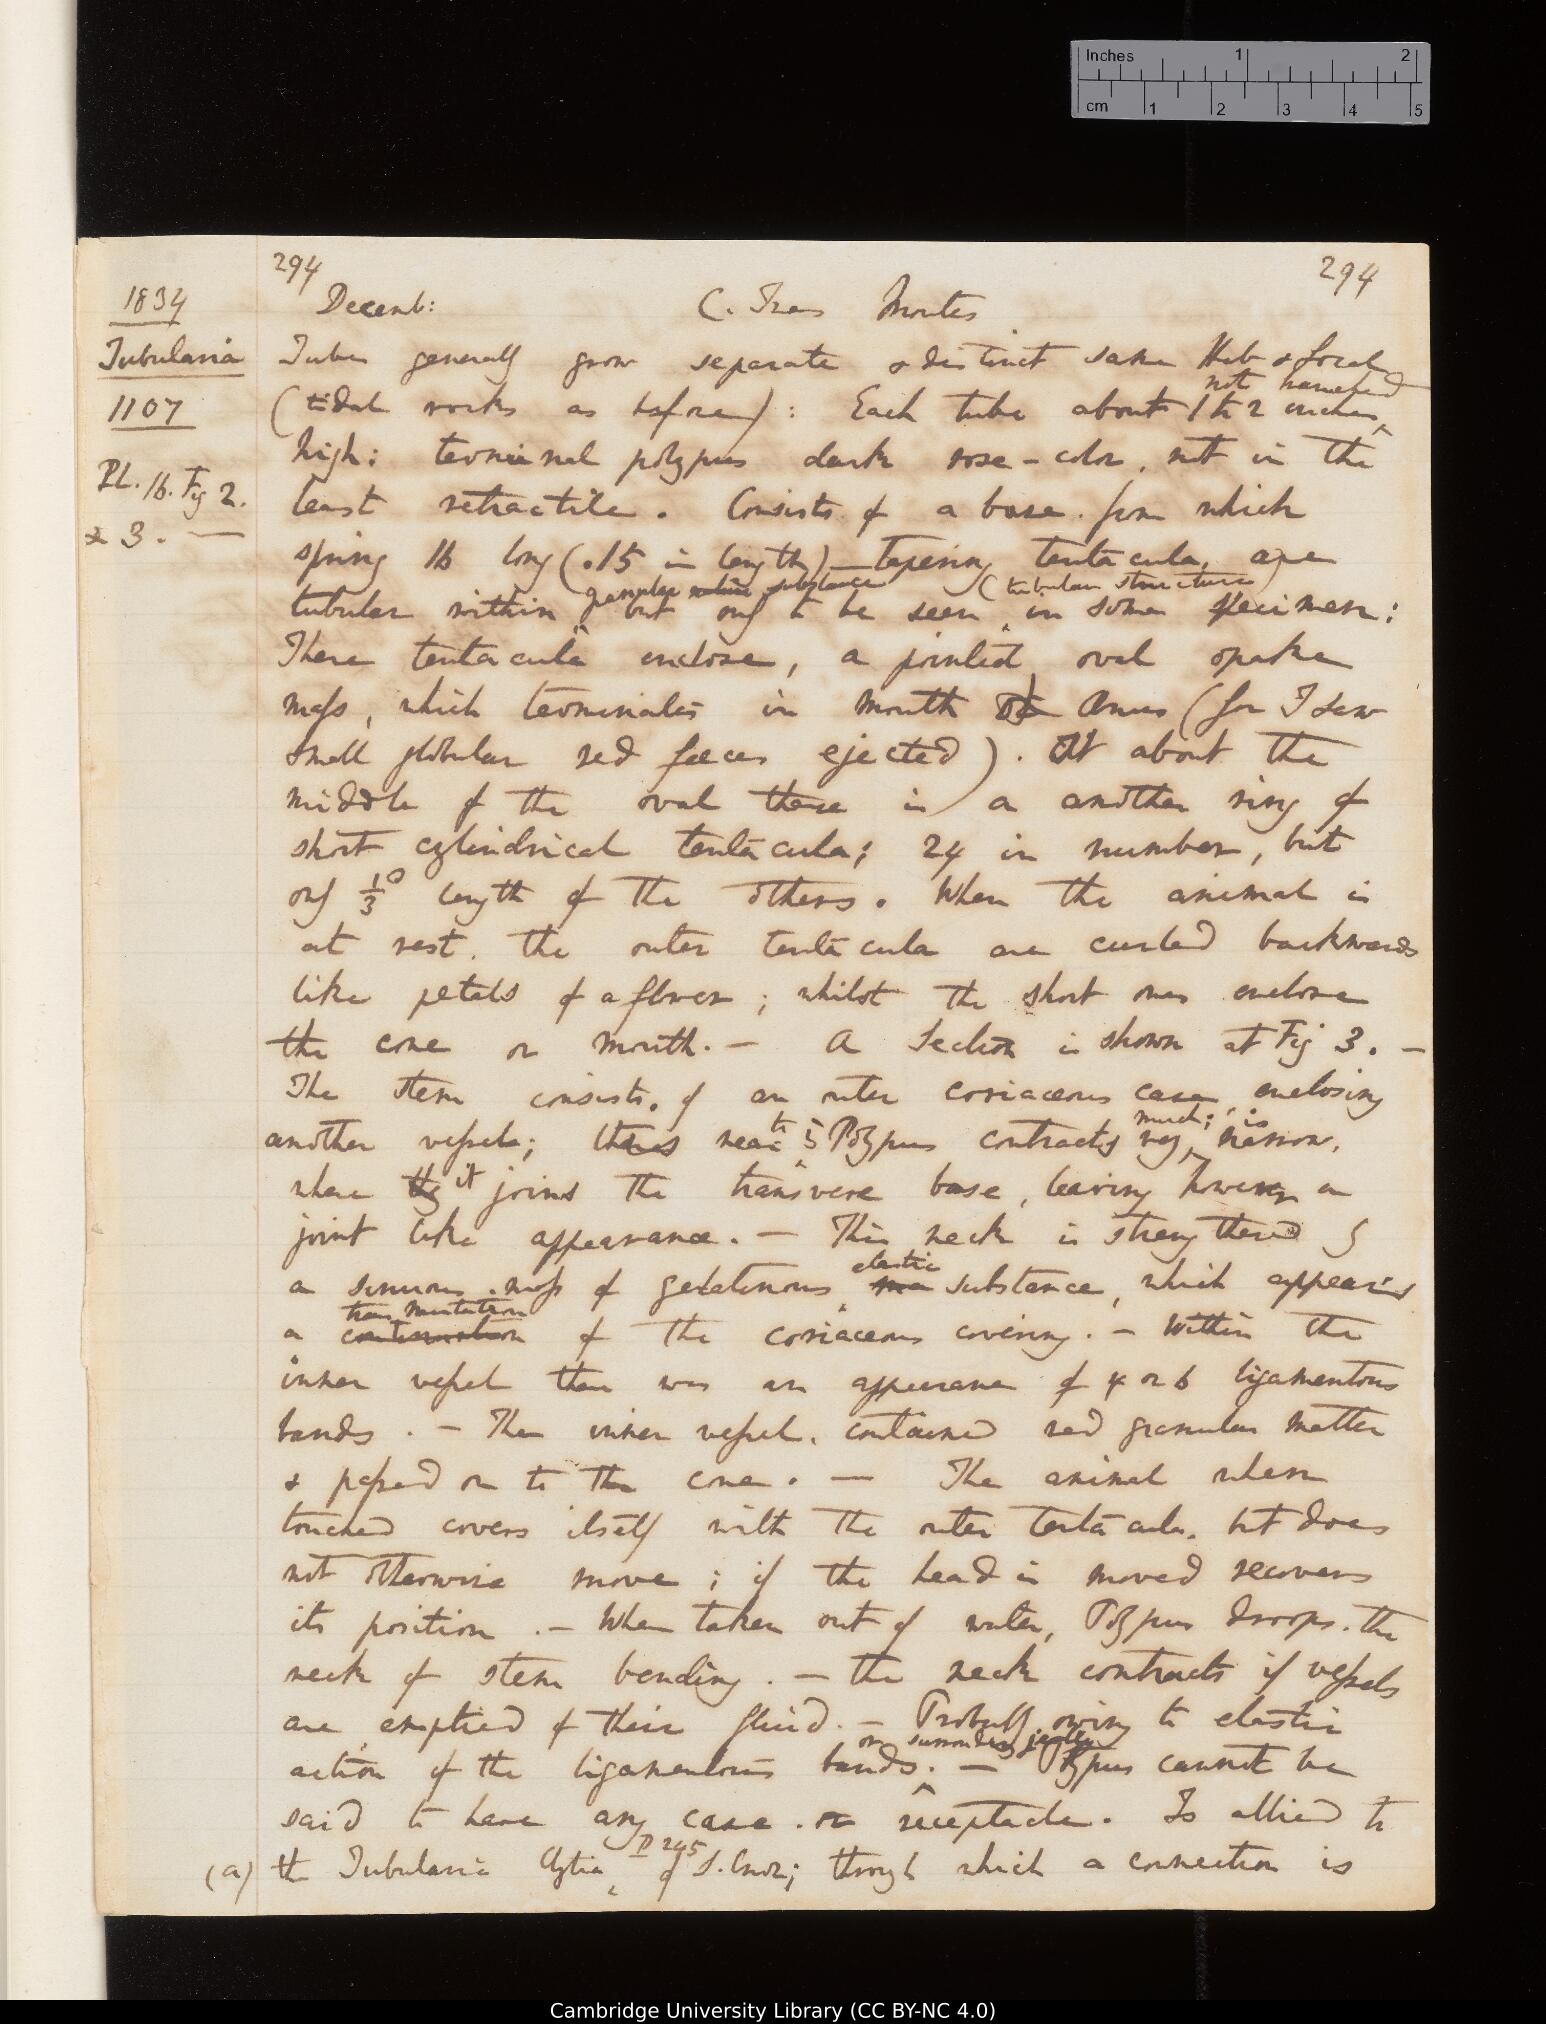 Inches 1 2
cm 1 2 3 4 5
294 294
1834
Decemb: C. Tres Montes
Tubularia
1107
Pl. 16. Fig 2.
& 3. —
Tubes generally grow separate & distinct same Hab & local
not branched
(tidal rocks as before): Each tube about 1 to 2 inches
high: terminal polypus dark rose-color, not in the
least retractile. Consists of a base. from which
spring 16 long (.15 in length) tapering tentacula, are
granular substance (tubular structure)
tubular within but only to be seen in some specimen:
These tentacula enclose, a pointed oval opake
mass, which terminates in mouth & Anus (for I saw
small globular red faeces ejected). At about the
middle of the oval there is a another ring of
short cylindrical tentacula; 24 in number, but
only 1/3d length of the others. When the animal is
at rest. the outer tentacula are curled backwards
like petals of a flower; whilst the short ones enclose
the cone or mouth. — A Section is shown at Fig 3. —
The stem consists. of an outer coriaceous case, enclosing
to much; is
another vessel; near Polypus contracts very, narrow,
where it joins the transverse base, leaving however an
joint like appearance. — This neck is strengthened by
elastic
a sinuous mass of gelatinous substance, which appears
transmutation
a continuation of the coriaceous covering. — Within the
inner vessel there was an appearance of 4 or 6 ligamentous
bands. — The inner vessel. contained red granular matter
& passed on to the cone. — The animal when
touched covers itself with the outer tentacula. but does
not otherwise move; if the head is moved recovers
its position. — When taken out of water, Polypus droops. the
neck of stem bending. — the neck contracts if vessels
are emptied of their fluid. — Probably owing to elastic
or surrounding jelly
action of the ligamentous bands. — Polypus cannot be
said to have any case. or receptacle. Is allied to
P 245
(a) the Tubularia Clytia of S. Cruz; through which a connection is
Cambridge University Library (CC BY-NC 4.0)